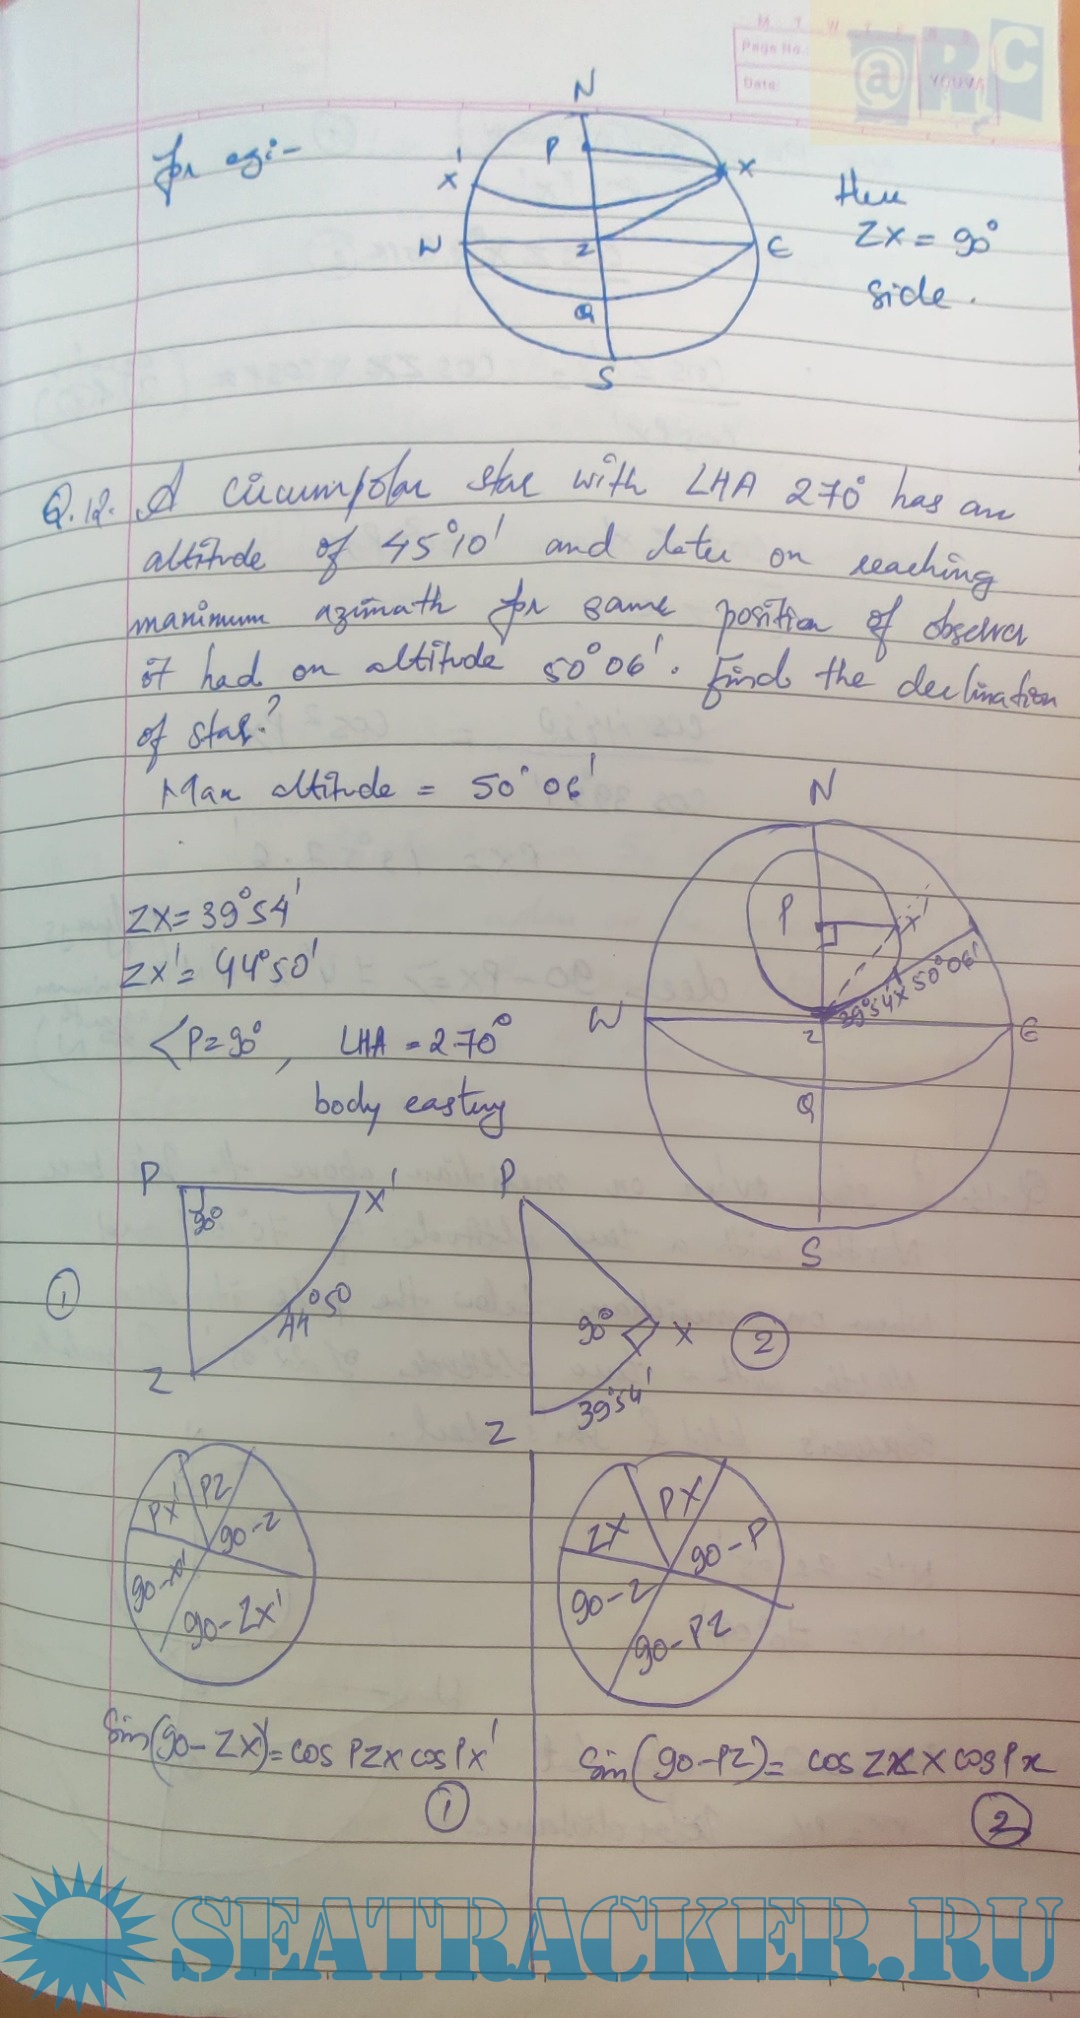 M T W T F S S
Page No.:
Date:
YOUVA
@RC
for eg:-
N
P
X'
X
W
Z
E
Q
S
Here
ZX = 90°
side.
Q.12. A circumpolar star with LHA 270° has an
altitude of 45°10' and later on reaching
maximum azimath for same position of observer
it had an altitude 50°06'. Find the declination
of star?
Max altitude = 50°06'
N
P
X'
W
Z
39°54'
X
50°06'
E
Q
S
ZX = 39°54'
ZX' = 44°50'
<P = 90°, LHA = 270°
body easting
P
90°
X'
44°50
Z
①
P
90°
X
39°54'
Z
②
PX'
PZ
90-Z
90-X'
90-ZX'
ZX
PX
90-P
90-Z
90-PZ
Sin(90-ZX') = cos PZ x cos PX'
①
Sin(90-PZ) = cos ZX x cos PX
②
SEATRACKER.RU